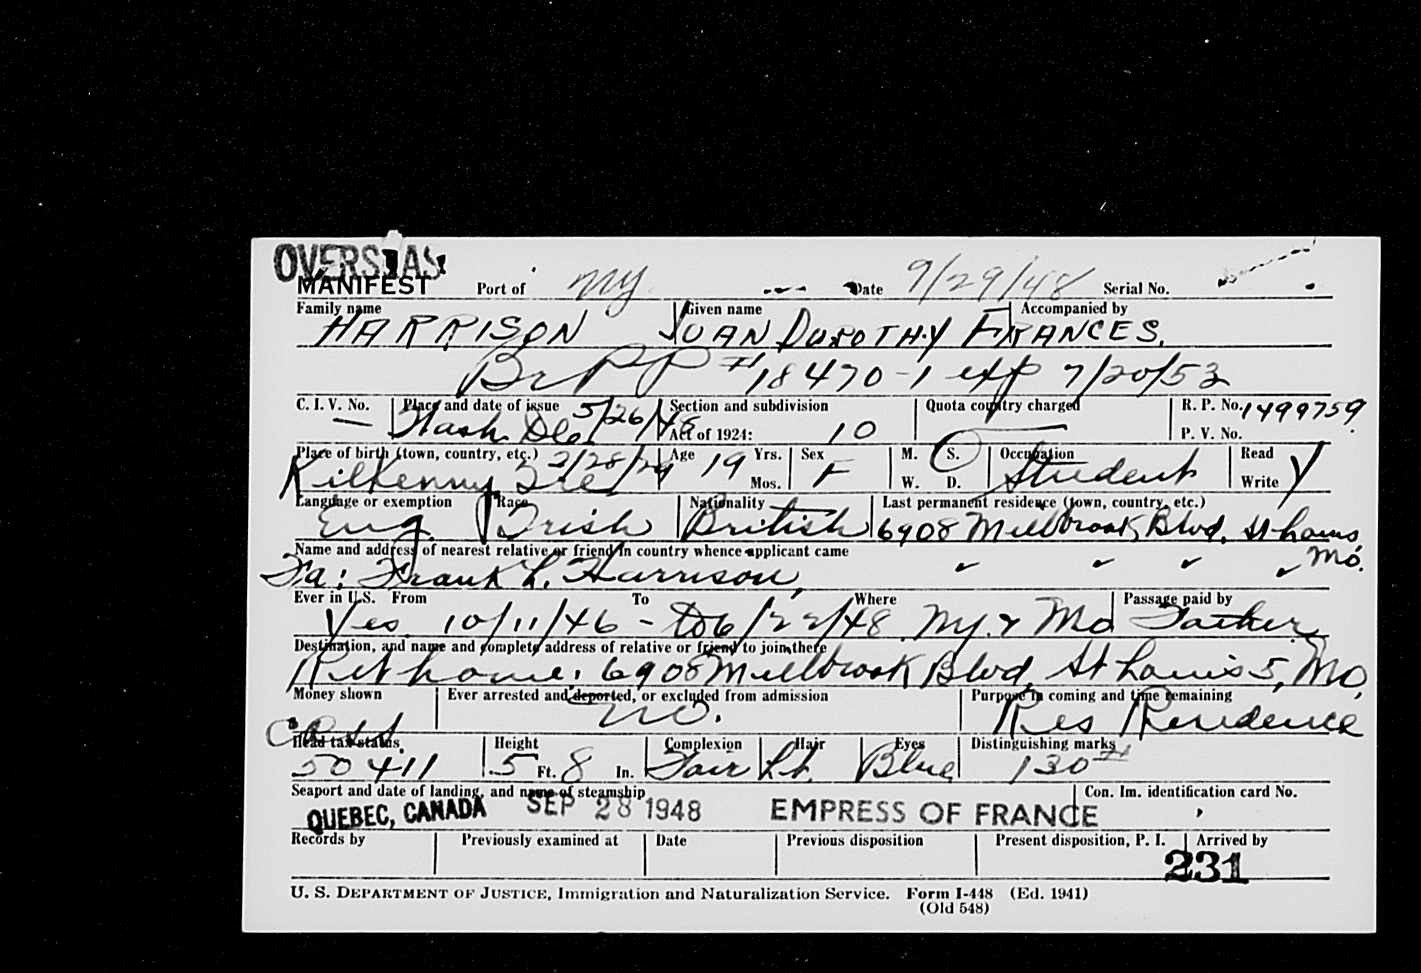 OVERSEAS
MANIFEST Port of NY Date 9/29/48 Serial No.
Family name Given name Accompanied by
HARRISON JOAN DOROTHY FRANCES.
Br PP # 18470-1 exp 7/20/53
C. I. V. No. Place and date of issue 5/26/48 Section and subdivision Quota country charged R. P. No. 1499759
— Wash. D.C. Act of 1924: 10 — P. V. No.
Place of birth (town, country, etc.) 2/28/29 Age 19 Yrs. Sex M. S. Occupation Read
Kilkenny Ire Mos. F W. D. Student Write Y
Language or exemption Race Nationality Last permanent residence (town, country, etc.)
Eng. Irish British 6908 Millbrook Blvd, St Louis,
Name and address of nearest relative or friend in country whence applicant came Mo.
Fa: Frank L. Harrison,
Ever in U.S. From To Where Passage paid by
Yes 10/11/46 - to 6/22/48 Ny. & Mo Father
Destination, and name and complete address of relative or friend to join there
Ret home: 6908 Millbrook Blvd, St Louis 5, Mo,
Money shown Ever arrested and deported, or excluded from admission Purpose in coming and time remaining
no. Res Residence
Head tax status Height Complexion Hair Eyes Distinguishing marks
50411 5 Ft. 8 In. Fair Lt. Blue 130#
Seaport and date of landing, and name of steamship Con. Im. identification card No.
QUEBEC, CANADA SEP 28 1948 EMPRESS OF FRANCE
Records by Previously examined at Date Previous disposition Present disposition, P. I. Arrived by
231
U. S. DEPARTMENT OF JUSTICE, Immigration and Naturalization Service. Form I-448 (Ed. 1941)
(Old 548)